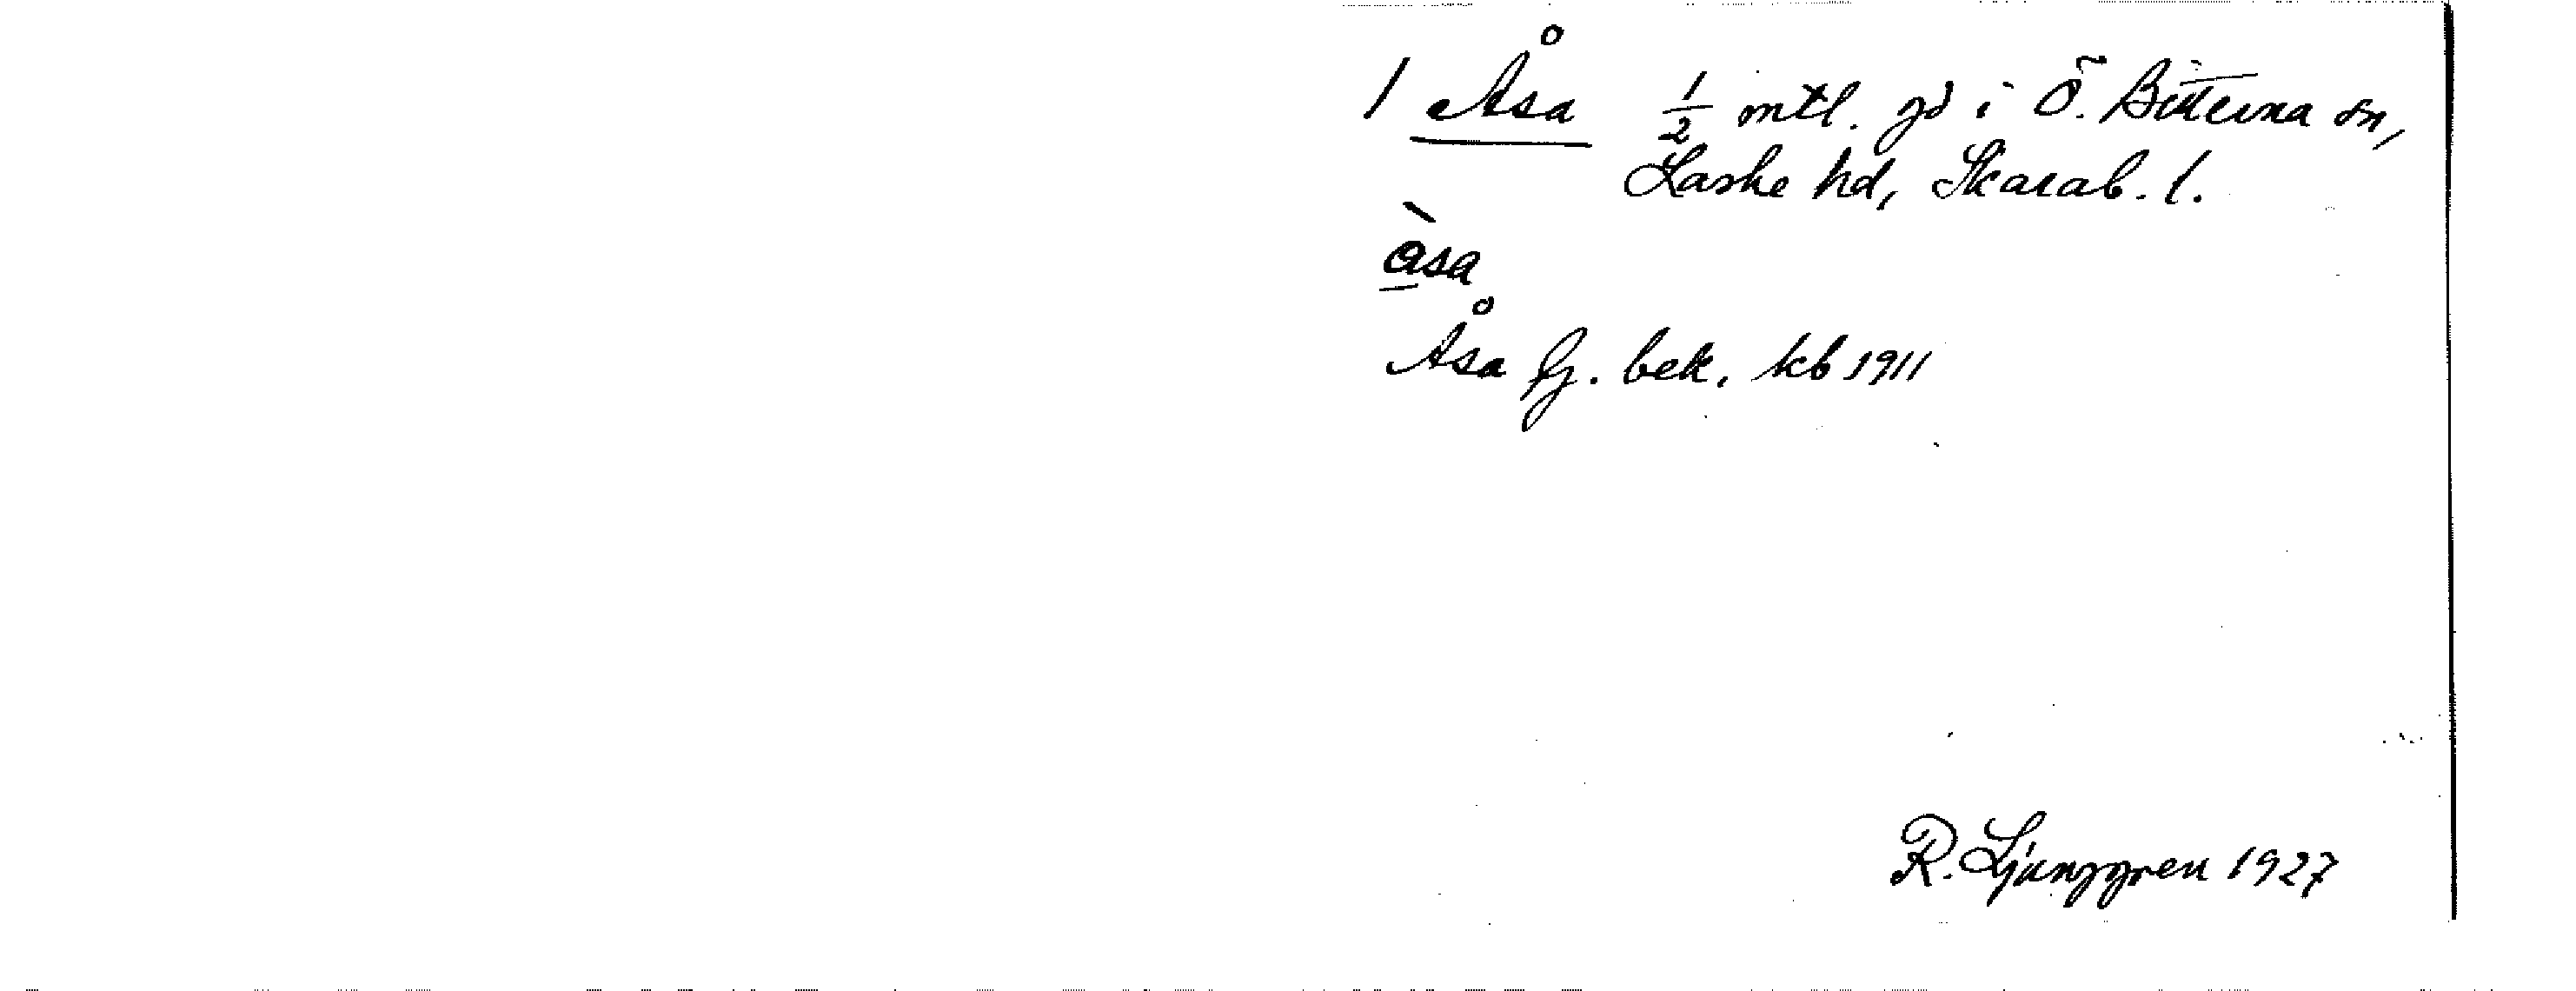 1 Åsa 1/2 mtl. gd i Ö. Bitterna sn,
Laske hd, Skarab. l.
àsa
Åsa fj. bek. kb 1911
R. Ljunggren 1927